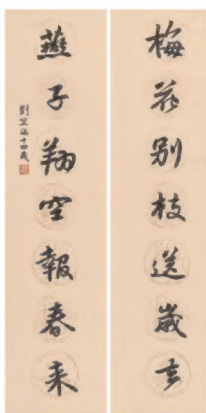 梅花別枝送歲去
燕子翔空報春来